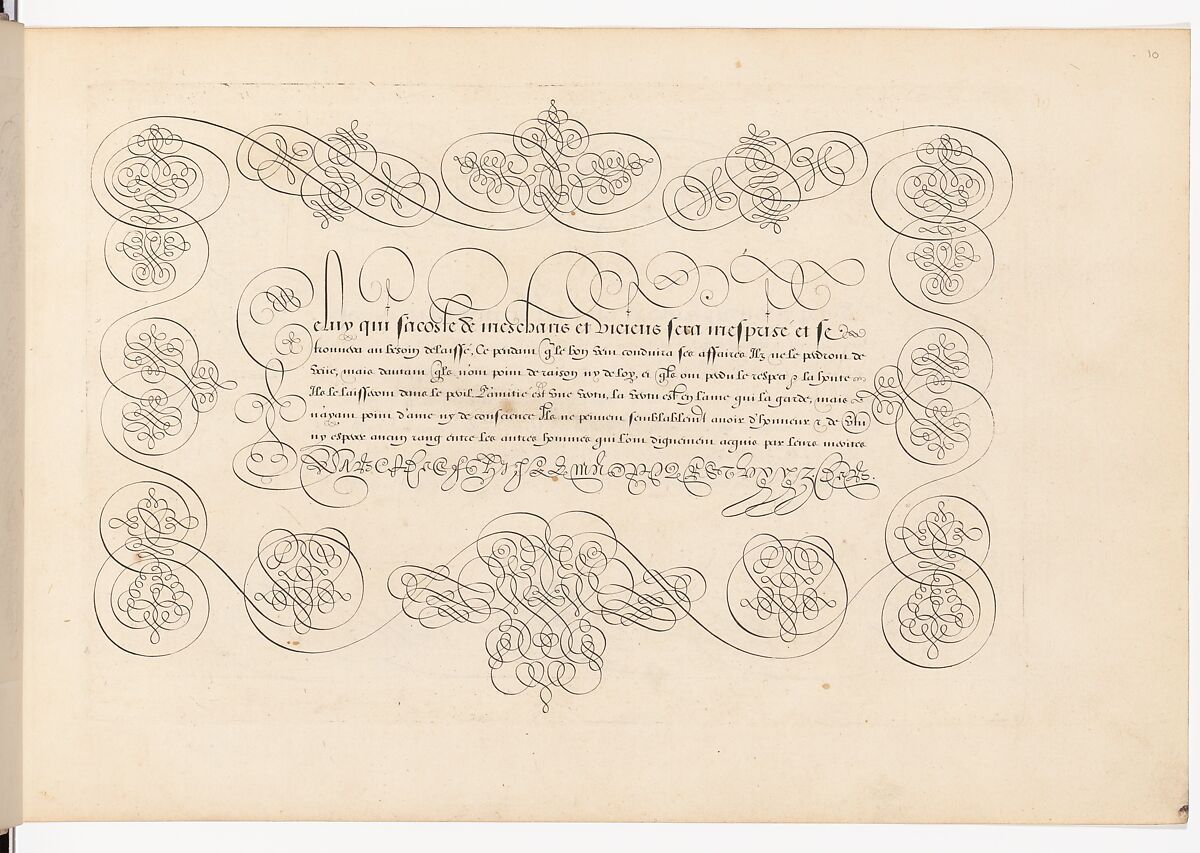 10
Celuy qui s'acoste de meschans et vicieus sera mesprisé et se
trouvera au besoin delaissé, Ce pendant q̃ le bon vent conduira ses affaires Ilz ne le perdront de
veüe, mais dautant q̃lz n'ont point de raison ny de loy, et q̃lz ont perdu le respect & la honte
Ils le laisseront dans le peril. L'amitié est une vertu, la vertu est en l'ame qui la garde, mais
n'ayant point d'ame ny de conscience Ils ne peuvent semblablemt avoir d'honneur & de vertu
ny esperer aucun rang entre les autres hommes qui l'ont dignement acquis par leurs merites